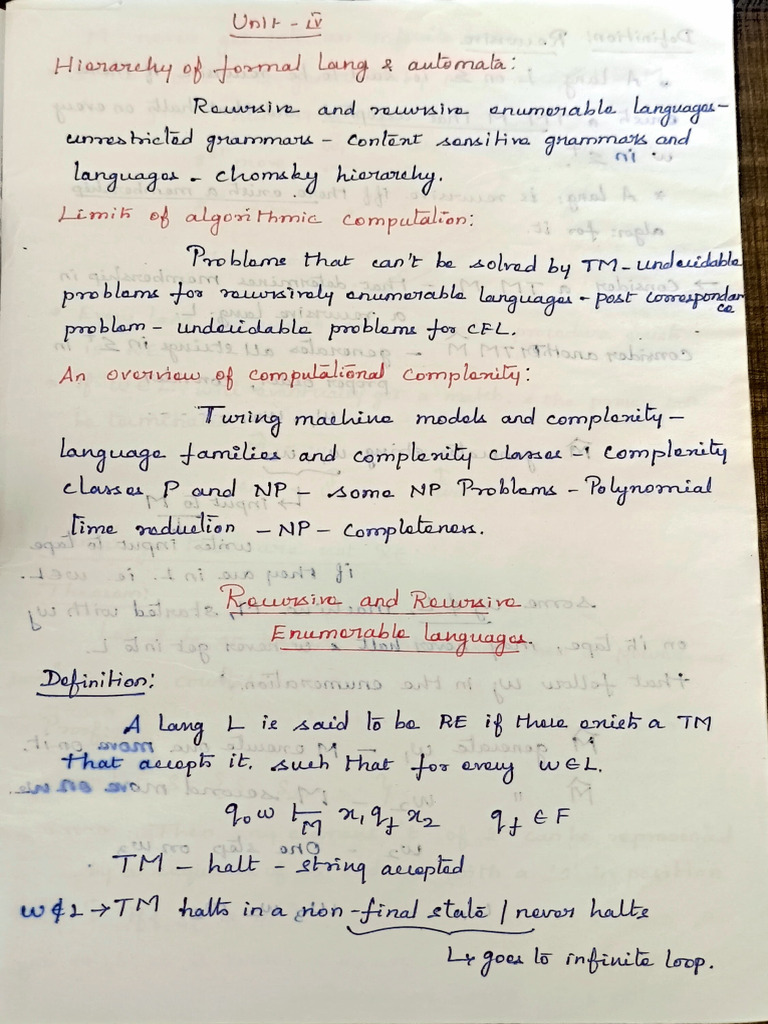 Unit - iv
Hierarchy of formal Lang & automata:
Recursive and recursive enumerable languages-
unrestricted grammars - content sensitive grammars and
languages - chomsky hierarchy.
Limits of algorithmic computation:
Problems that can't be solved by TM - undecidable
problems for recursively enumerable languages - post correspondan
ce
problem - undecidable problems for CFL.
An overview of computational complexity:
Turing machine models and complexity -
language families and complexity classes - complexity
classes P and NP - some NP Problems - Polynomial
time reduction - NP - completeness.
Recursive and Recursive
Enumerable languages.
Definition:
A Lang L is said to be RE if there exists a TM
that accepts it. such that for every w ∈ L.
q₀ w ⊢_M x₁ q_f x₂ q_f ∈ F
TM - halt - string accepted
w ∉ L → TM halts in a non-final state / never halts
↳ goes to infinite loop.